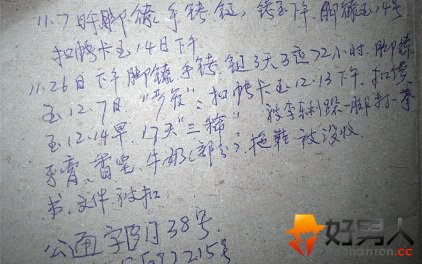 11.7日午脚镣手铐链,铐至下午.脚镣至14号
扣帐卡至14日下午
11.26日下午脚镣手铐.链3天3夜72小时.脚镣
至12.7日 "劳役".扣帐卡至12.13下午.扣
至12.14早.17天"三稀" 被李 踩一脚打一拳
牙膏、香皂、牛奶(部分)、拖鞋被没收
书.文件被扣
公通字[ ]38号
好男人
haonanren.cc